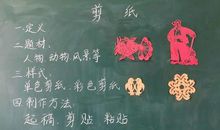 剪 纸
一.定义
二.题材.
人物 动物 风景等
三.样式.
单色剪纸、彩色剪纸
四.制作方法.
起稿. 剪贴 粘贴